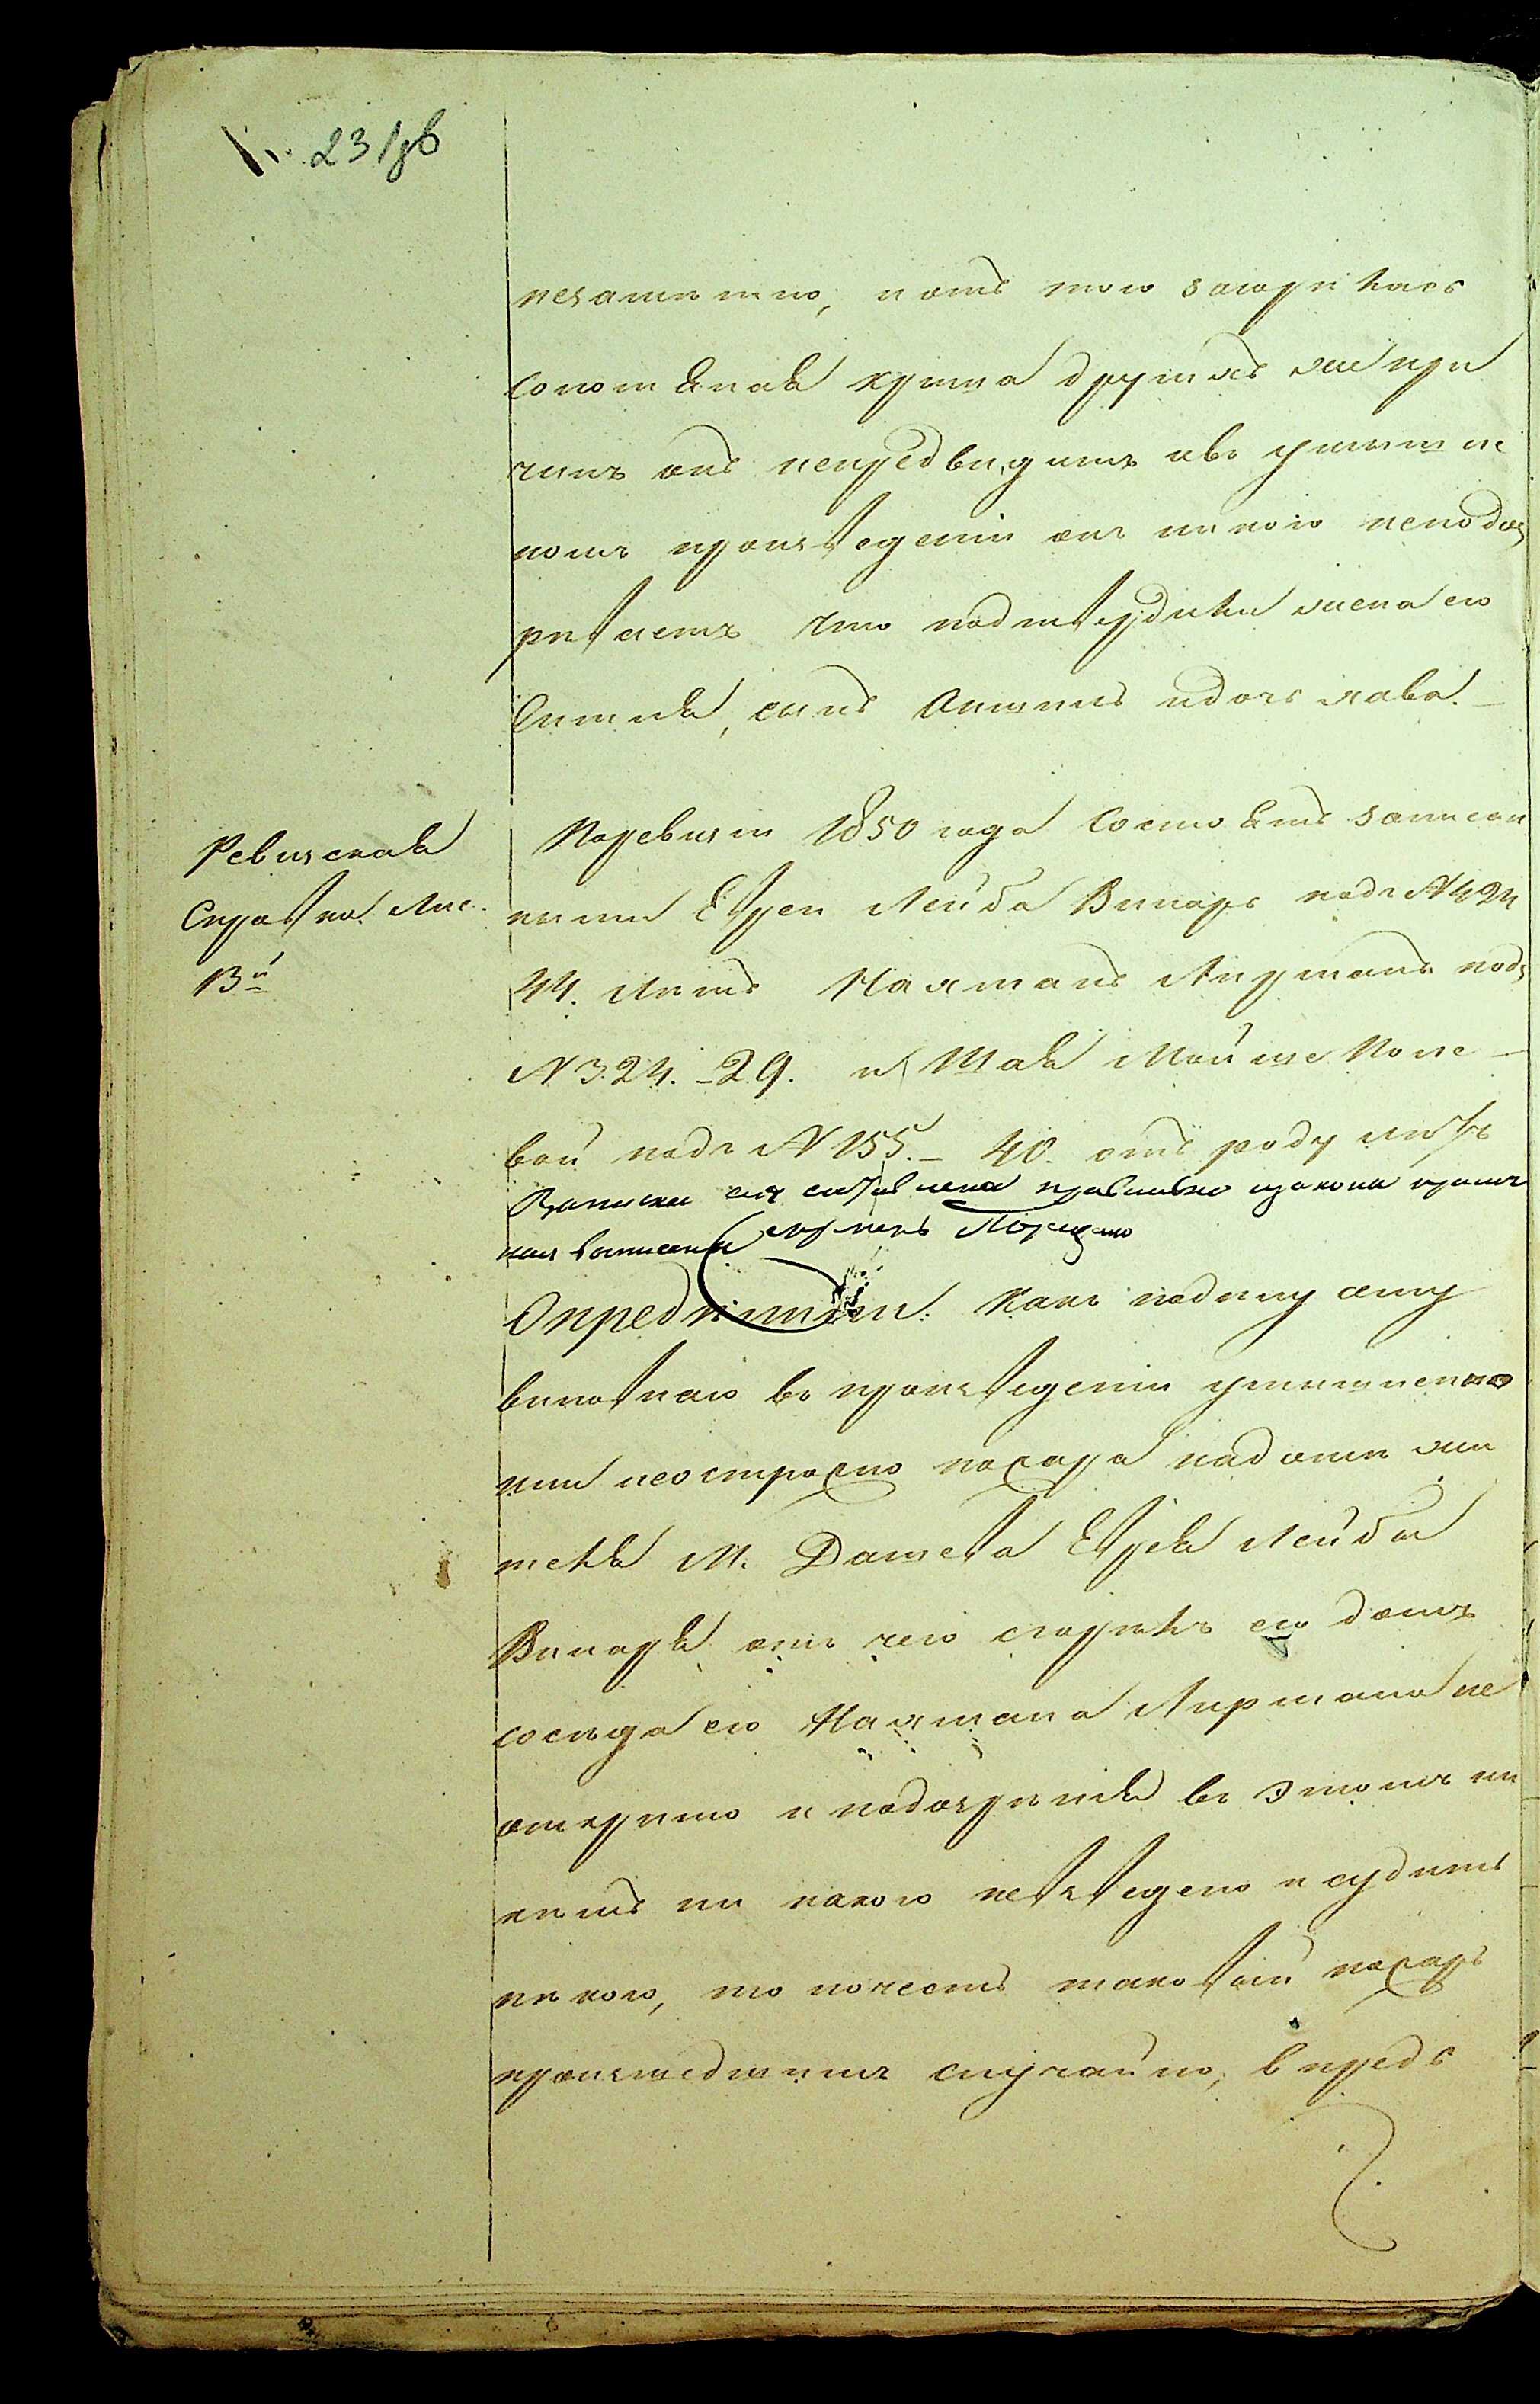 23 Iдв
незаметно, и отъ того загорѣлась
соломяная крыша другихъ же при
чинъ онъ непредвидитъ и въ умышле
номъ произведеніи онъ никого неподоз
рѣваетъ что подтвердили жена его
сынъ и дочь хава. –
Ревизская
Справка Лис.
13й
По ревизіи 1850 года Состоятъ записан
ными Евреи Лейба Винаръ подъ №424
44. лѣтъ Нахманъ Лирманъ подъ
№324. – 29. и Мойше
вой подъ №155. – 40. отъ роду лѣтъ
Записка сія составлена правильно и законы
Опредѣлили: Какъ по дѣлу сему
виновнаго въ произведеніи умышленнаго
или неосторожно пожара надомъ жи
теля М. Дашева Еврея Лейбы
Винаря отъ чего сгорѣлъ его домъ
сосѣда его Нахмана Лирмана не
открыто и подозрѣнія въ этомъ ни
на кого невзведено и судить
некого, то почесть таковый пожаръ
произшедшимъ случайно, впредь